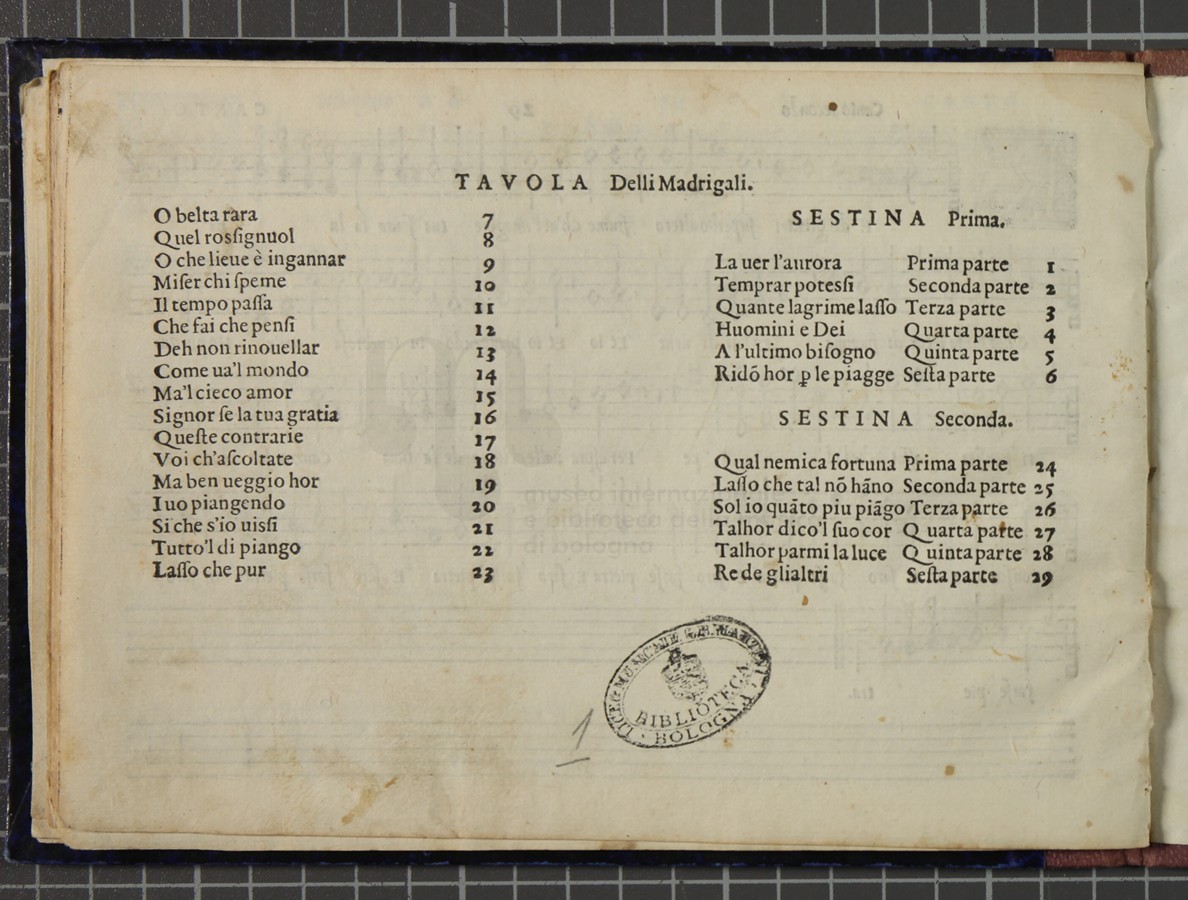 TAVOLA Delli Madrigali.
O belta rara 7
Quel rosſignuol 8
O che lieue è ingannar 9
Miſer chi ſpeme 10
Il tempo paſſa 11
Che fai che penſi 12
Deh non rinouellar 13
Come ua'l mondo 14
Ma'l cieco amor 15
Signor ſe la tua gratia 16
Queſte contrarie 17
Voi ch'aſcoltate 18
Ma ben ueggio hor 19
I uo piangendo 20
Si che s'io uisſi 21
Tutto'l di piango 22
Laſſo che pur 23
SESTINA Prima.
La uer l'aurora Prima parte 1
Temprar potesſi Seconda parte 2
Quante lagrime laſſo Terza parte 3
Huomini e Dei Quarta parte 4
A l'ultimo biſogno Quinta parte 5
Ridō hor ꝑ le piagge Seſta parte 6
SESTINA Seconda.
Qual nemica fortuna Prima parte 24
Laſſo che tal nō hāno Seconda parte 25
Sol io quāto piu piāgo Terza parte 26
Talhor dico'l ſuo cor Quarta parte 27
Talhor parmi la luce Quinta parte 28
Re de glialtri Seſta parte 29
LICEO MUSICALE G.B. MARTINI
BIBLIOTECA
BOLOGNA
1
museo internazionale
e biblioteca della
di bologna